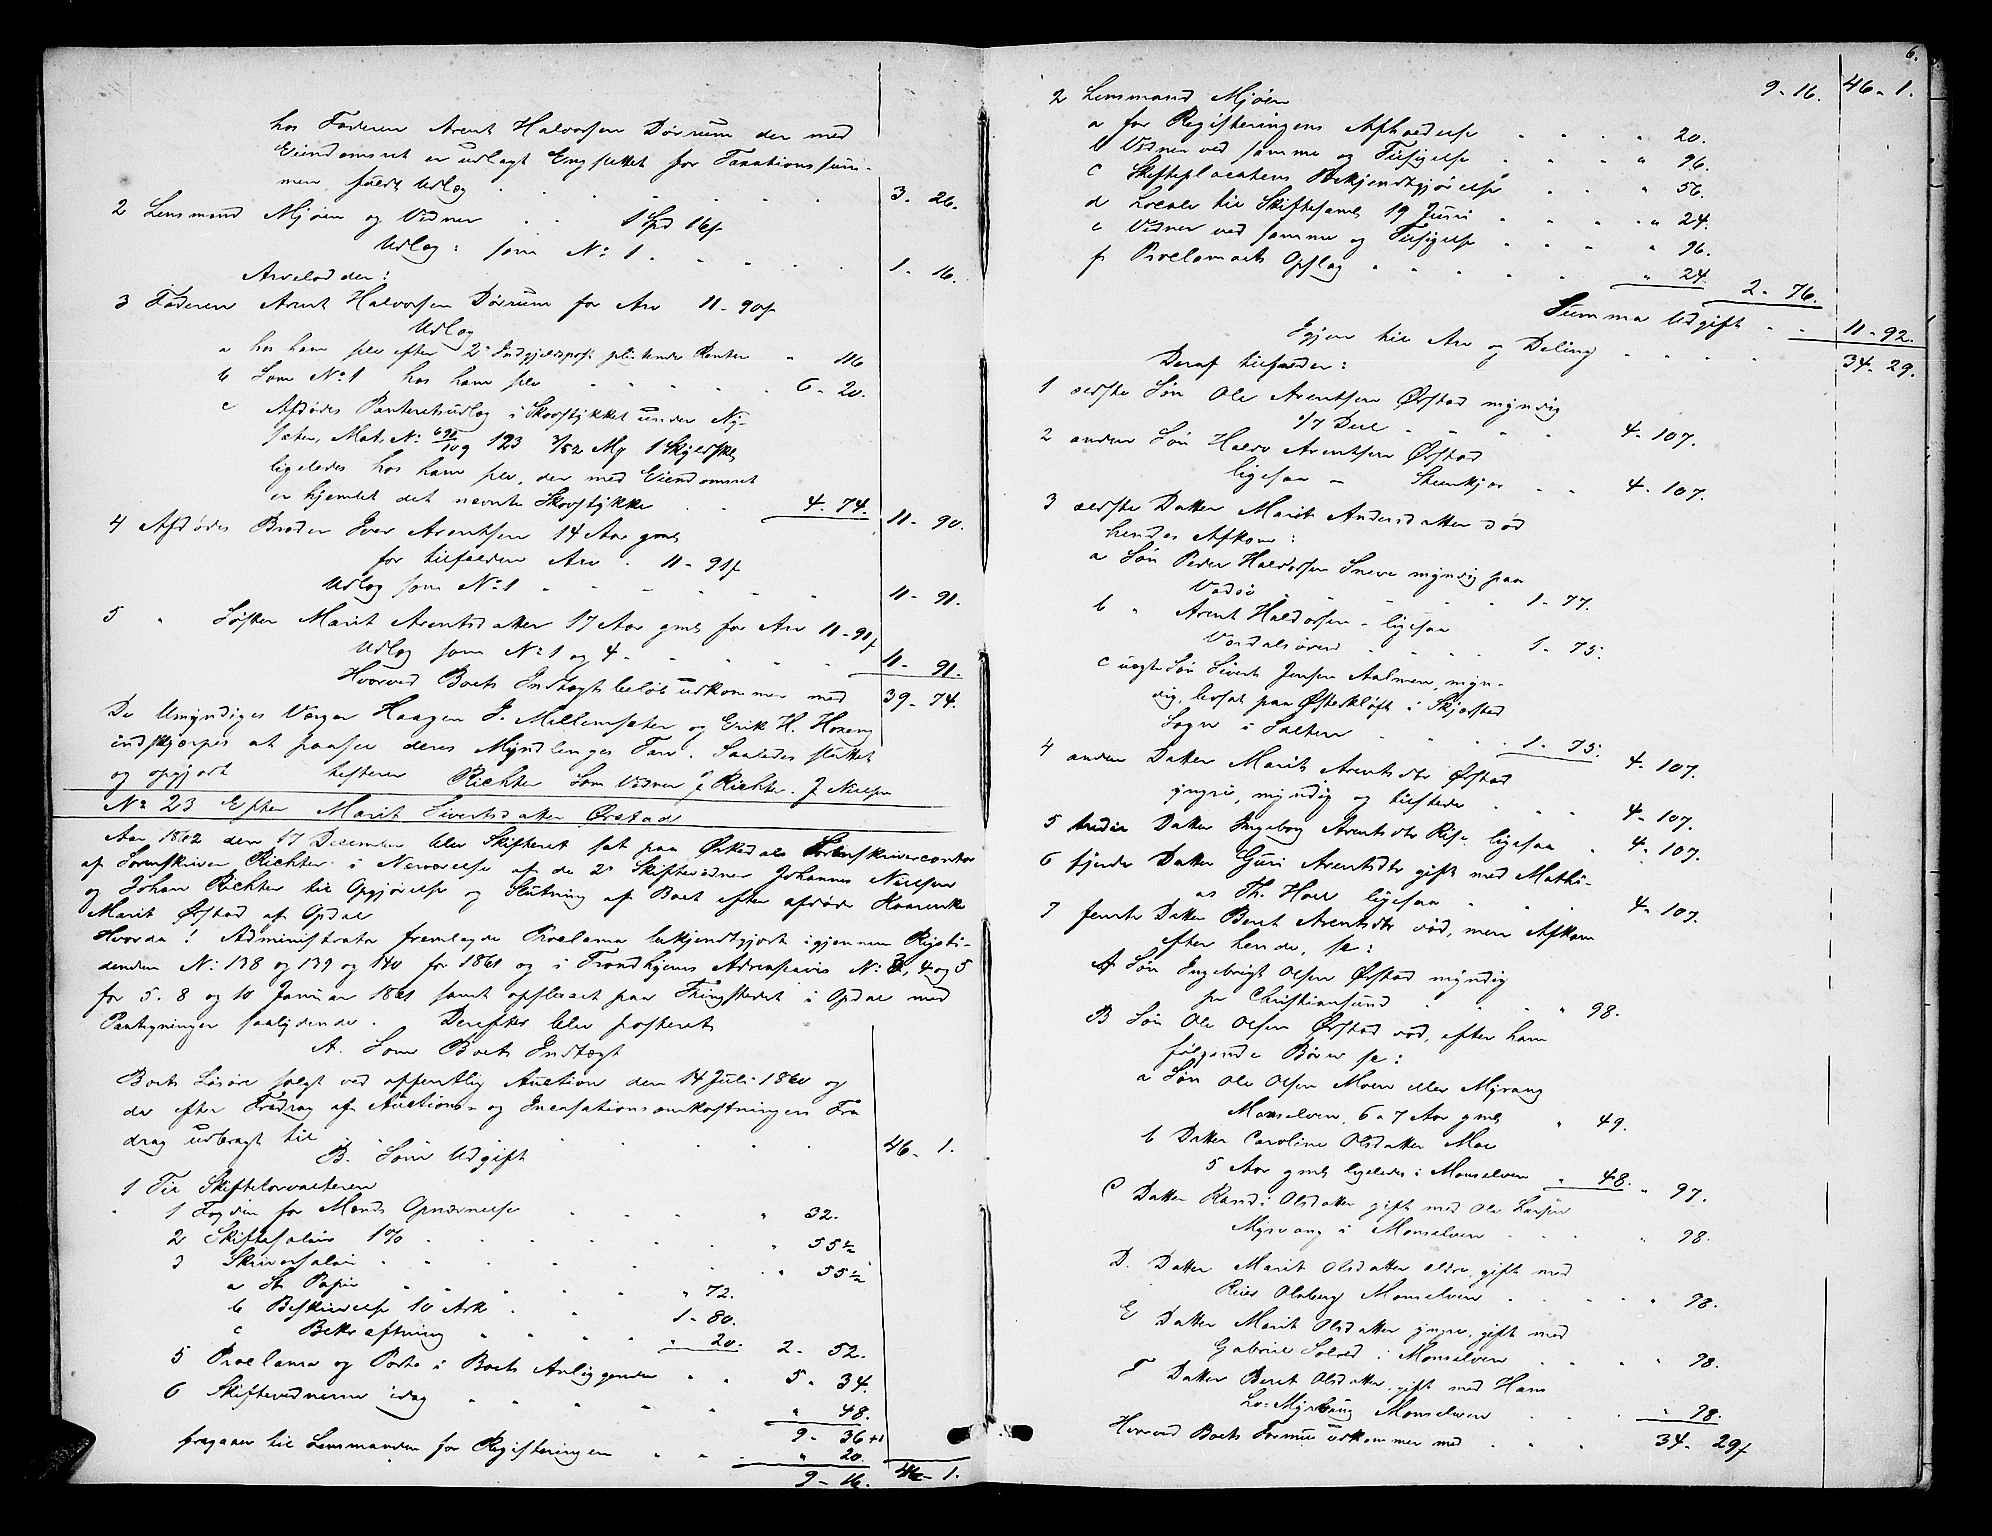 hos Faderen Arent Halvorsen Dørrum der med
Eiendomsret er udlagt Engslettet for Taxationssum-
men, fuldt Udlæg . . . . . 3 - 26.
2 Lensmand Mjøen og Vidner . . 1 Spd 16 s
Udlæg: som No 1 . . . . . 1 - 16.
Arvelodder:
3 Faderen Arent Halvorsen Dørrum for Arv 11 - 90 s
Udlæg
a hos ham selv efter 2de Indgjeldspost Renter " 116
b Som No 1 hos ham selv " " " " 6 - 20.
c Afdødes Panteretsudlæg i Skovstykket under Ny-
sæter, Mat. No 109 123
ligeledes hos ham selv, der med Eiendomsret
er hjemlet det nævnte Skovstykke . . 4 - 74. 11 - 90.
4 Afdødes Broder Iver Arentsen 14 Aar gml
for tilfalden Arv . 11 - 91 s
Udlæg som No 1 " " " " " 11 - 91.
5 " Søster Marit Arentsdatter 17 Aar gml for Arv 11 - 91 s
Udlæg som No 1 og 4 - " " " " 11 - 91.
Hvorved Boets Indtægtsbeløb udkommer med 39 - 74.
De Umyndiges Værger Haagen J. Mellemsæter og Erik H. Hoxeng
indskjærpes at paasee deres Myndlinges Tarv. Saaledes sluttet
og opgjort hefteren Richter Som Vidner J Richter. J Nielsen
No 23 Efter Marit Sivertsdatter Ørstad
Aar 1862 den 17 December blev Skifteret sat paa Ørkedals Sorenskrivercontor
af Sorenskriver Richter i Nærværelse af de 2de Skiftevidner Johannes Nielsen
og Johan Richter til Opgjørelse og Slutning af Boet efter afdøde Kaarenke
Marit Ørstad af Opdal
Hvorda! Administrator fremlagde Proclama bekjendtgjort igjennem Rigsti-
denden No 138 og 139 og 140 for 1861 og i Trondhjems Adresseavis No 3, 4 og 5
for 5. 8 og 10 Januar 1861 samt oplæset paa Thingstedet i Opdal med
Paategninger saalydende. Derefter blev posteret
A. Som Boets Indtægt
Boets Løsøre solgt ved offentlig Auction den 14 Juli 1860 og
der efter Fradrag af Auctions- og Incassationsomkostningers Fra
drag udbragt til " " " " " 46 - 1.
B. Som Udgift
1 Til Skifteforvalteren
1 Fogden for Mands Opnævnelse . . . . " 32.
2 Skiftesalair 1% . . . . . " 55½
3 Skriversalair . . . . . " 55½
a St Papir " " " " " 72.
b Beskrivelse 10 Ark . . . 1 - 80.
c Bekræftning " " " " " 20. 2 - 52.
5 Proclama og Porto i Boets Anliggender " " 5 - 34.
6 Skiftevidnerne idag " " " " " 48.
9 - 36
fragaaer til Lensmanden for Registeringen " " " 20.
9 - 16. 46 - 1.
6.
9 - 16. 46 - 1.
2 Lensmand Mjøen
a for Registeringens Afholdelse " " " " 20.
b Vidner ved samme og Tilsigelse . . . " 96.
c Skifteplacatens Bekjendtgjørelse . . " 56.
d Locale til Skiftesaml 19 Juni " " " " 24.
e Vidner ved samme og Tilsigelse . . . " 96.
f Proclamaets Opslag " " " " " 24. 2 - 76.
Summa Udgift . . 11 - 92.
Igjen til Arv og Deling " " " " 34 - 29.
Deraf tilfalder:
1 ældste Søn Ole Arentsen Ørstad myndig
1/7 Deel " " " " 4 - 107.
2 anden Søn Halvor Arentsen Ørstad
ligesaa - Steenkjær . . 4 - 107.
3 ældste Datter Marit Andersdatter død
hendes Afkom:
a Søn Peder Haldorsen Sneve myndig paa
Vadsø " " " " " 1 - 77.
b " Arent Haldorsen - ligesaa
Værdalsøren " " " " 1 - 75.
c uægte Søn Sivert Jensen Aalmen, myn-
dig, bosat paa Østerkløft i Skjerstad
Sogn i Salten " " " " 1 - 75. 4 - 107.
4 anden Datter Marit Arentsdtr Ørstad
yngre, myndig og tilstede " . . . 4 - 107.
5 tredie Datter Ingeborg Arentsdtr Rise ligesaa " 4 - 107.
6 fjerde Datter Guri Arentsdtr gift med Mathi-
as Th. Hoel ligesaa " " " 4 - 107.
7 femte Datter Beret Arentsdtr død, men Afkom
efter hende, se:
A Søn Ingebrigt Olsen Ørstad myndig
pr Christiansund " " " " 98.
B Søn Ole Olsen Ørstad død, efter ham
følgende Børn se:
a Søn Ole Olsen Moen eller Myrvang
Maaselven, 6 a 7 Aar gml " 49.
b Datter Caroline Olsdatter Moe
5 Aar gml ligeledes i Maaselven " 48. " 97.
C Datter Randi Olsdatter gift med Ole Larsen
Myrvang i Maaselven . . . . " 98.
D. Datter Marit Olsdatter ældre, gift med
Reier Olsberg Maaselven . . . . " 98.
E Datter Marit Olsdatter yngre, gift med
Gabriel i Maaselven . . . " 98.
F Datter Beret Olsdatter, gift med Hans
Myrvang Maaselven . . . " 98.
Hvorved Boets Formue udkommer med " " " 34 - 29 s